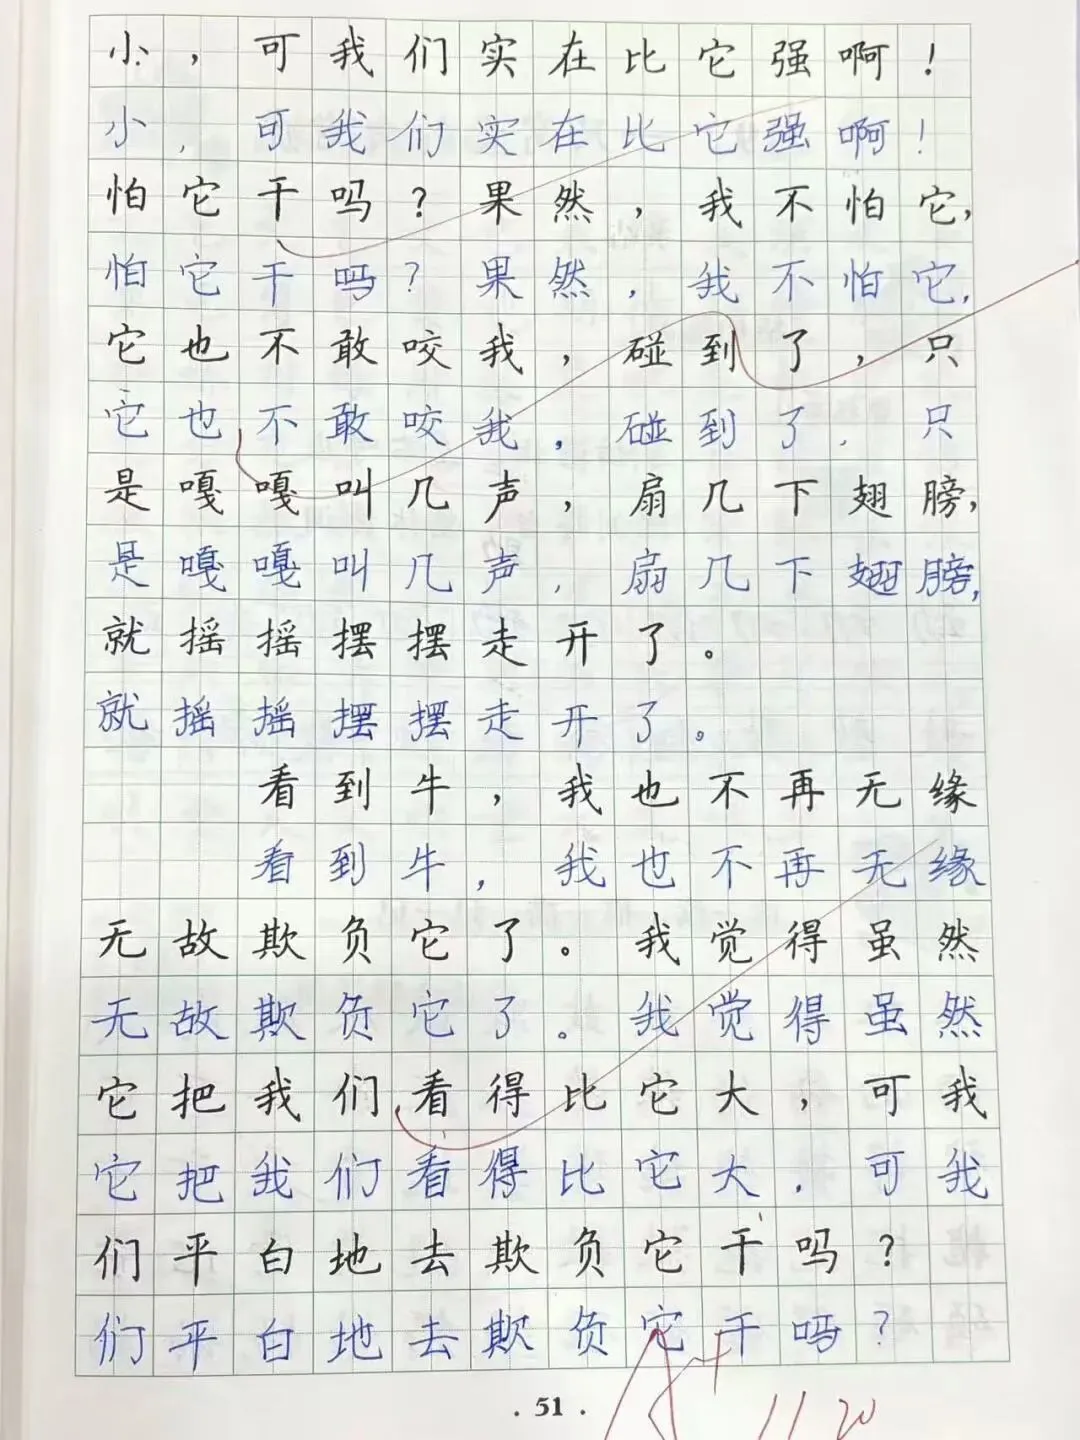 小，可我们实在比它强啊！
小，可我们实在比它强啊！
怕它干吗？果然，我不怕它，
怕它干吗？果然，我不怕它，
它也不敢咬我，碰到了，只
它也不敢咬我，碰到了，只
是嘎嘎叫几声，扇几下翅膀，
是嘎嘎叫几声，扇几下翅膀，
就摇摇摆摆走开了。
就摇摇摆摆走开了。
看到牛，我也不再无缘
看到牛，我也不再无缘
无故欺负它了。我觉得虽然
无故欺负它了。我觉得虽然
它把我们看得比它大，可我
它把我们看得比它大，可我
们平白地去欺负它干吗？
们平白地去欺负它干吗？
A+ 11.20
. 51 .